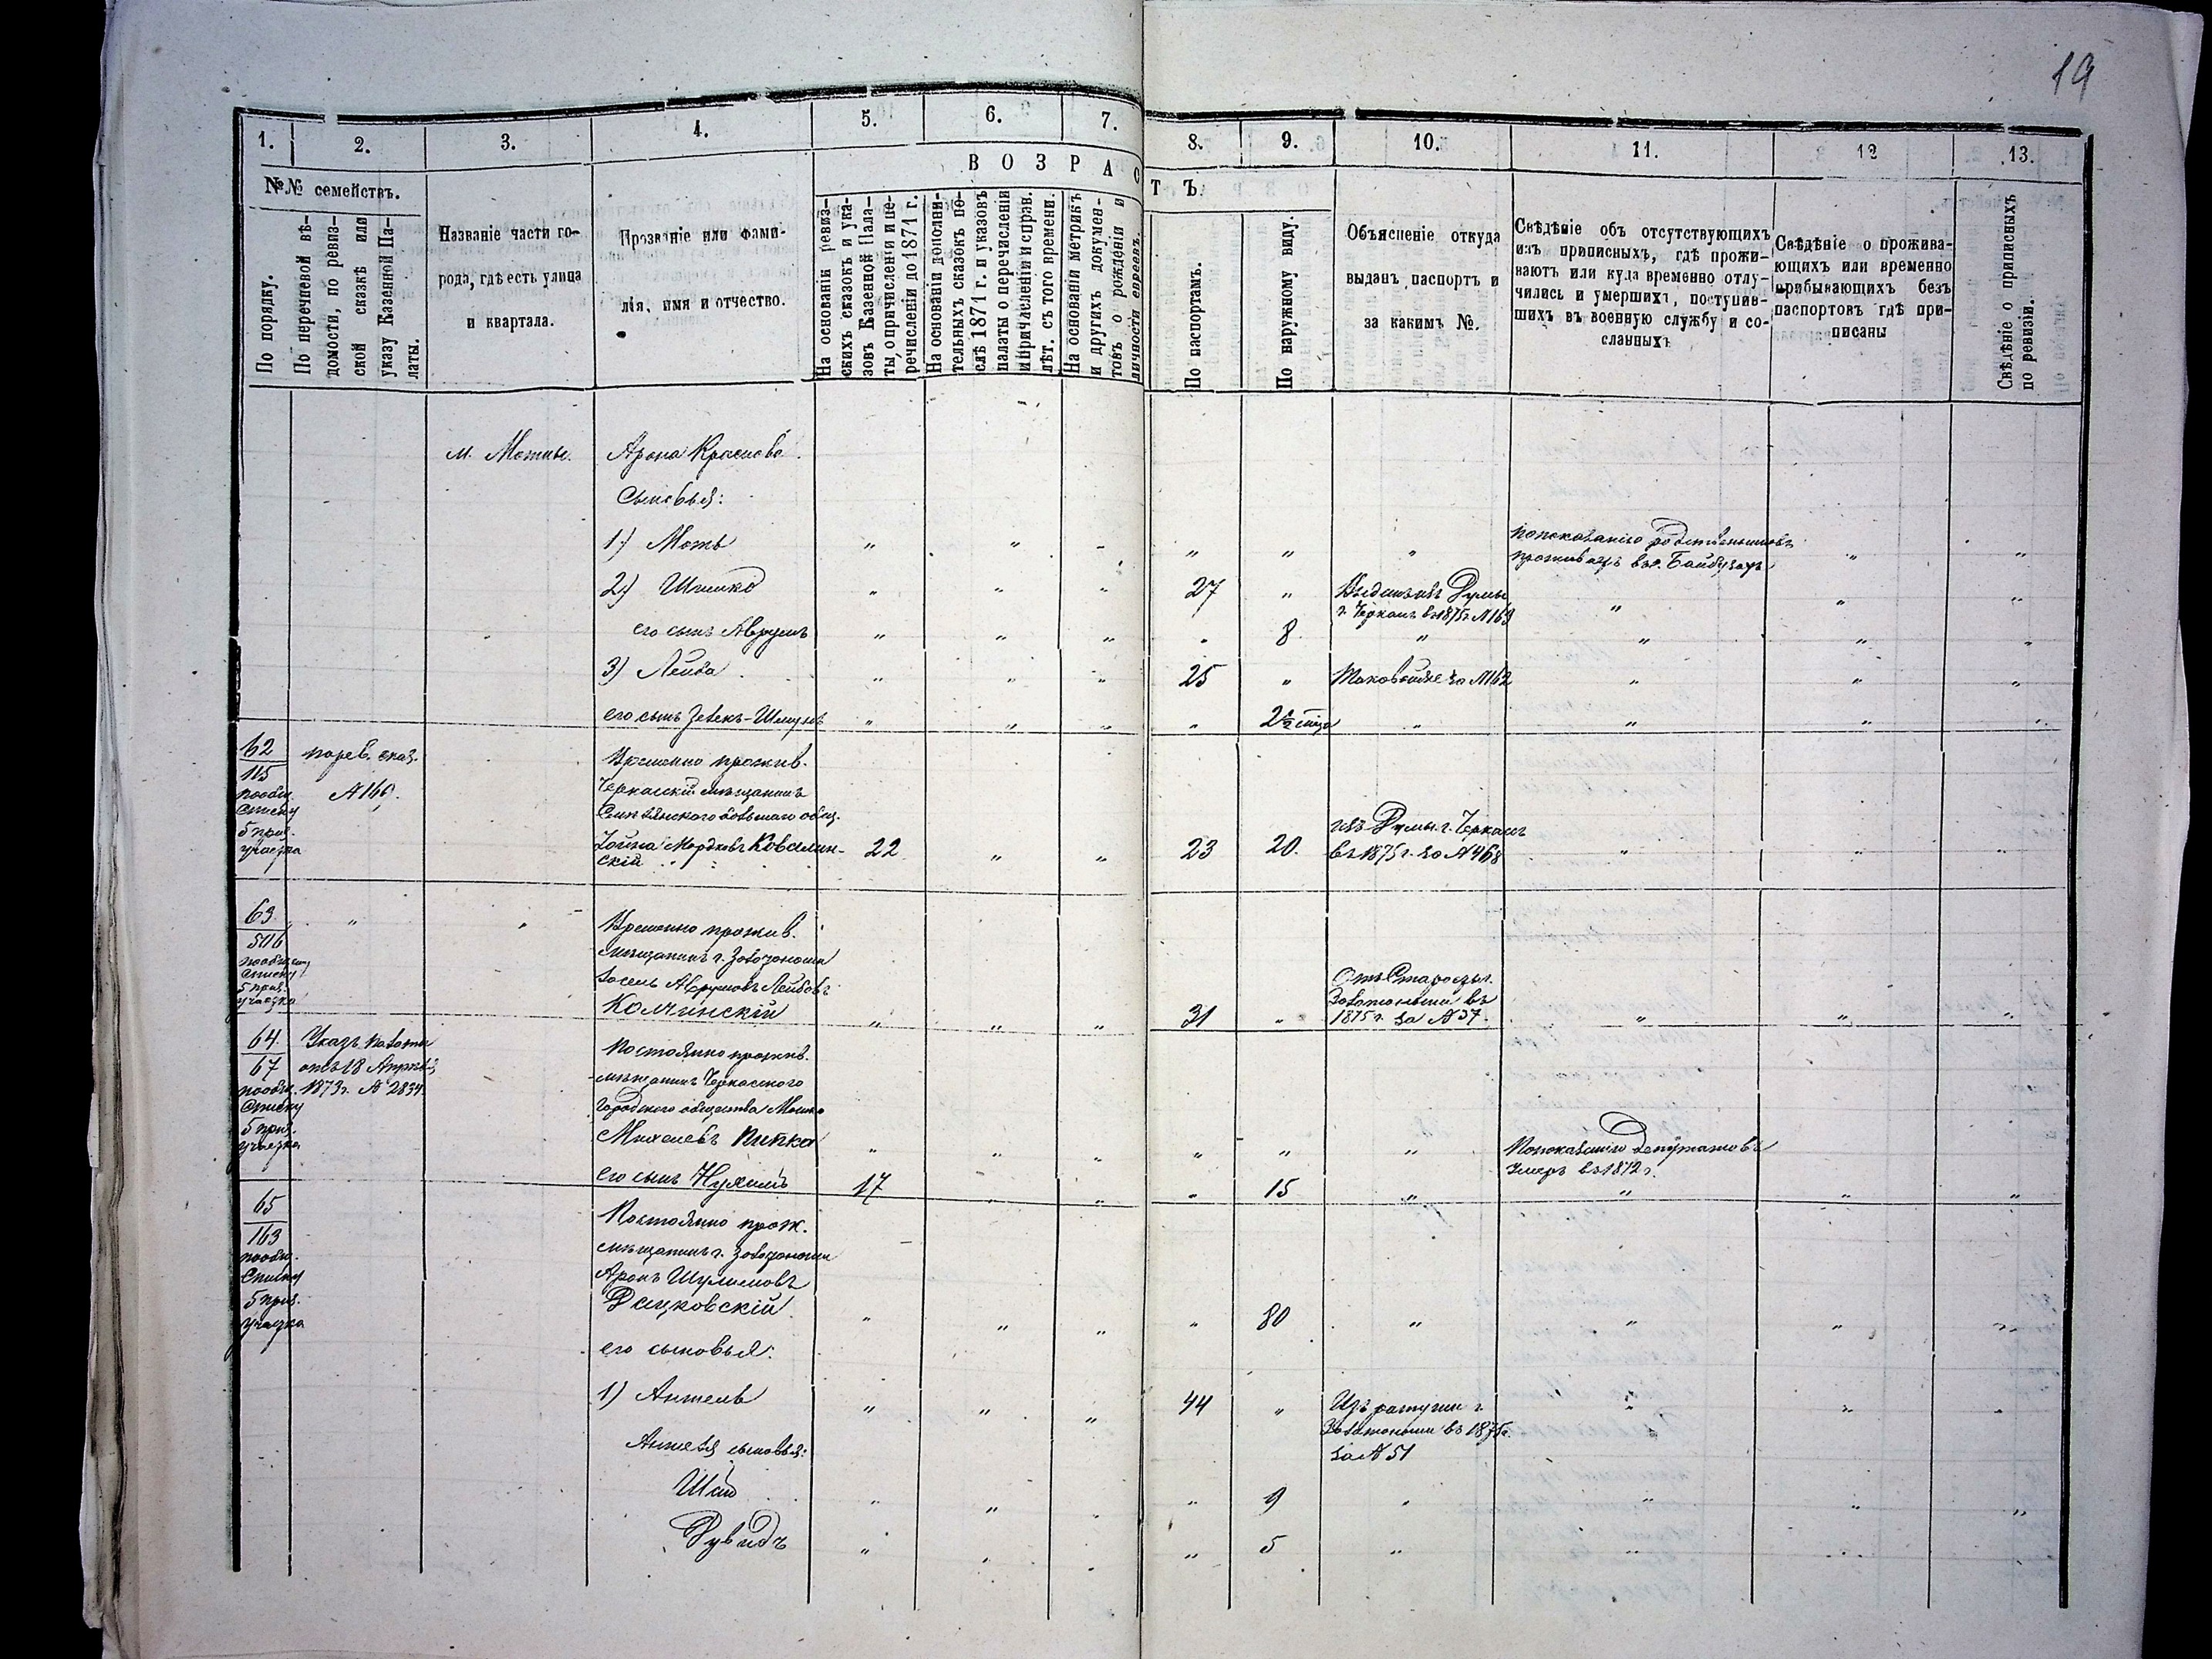 19
1.
2.
3.
4.
5.
6.
7.
8.
9.
10.
11.
12
13.
№№ семействъ.
ВОЗРАСТЪ.
По порядку.
По перечневой вѣ-
домости, по ревиз-
ской сказкѣ или
указу Казенной Па-
латы.
Названіе части го-
рода, гдѣ есть улица
и квартала.
Прозваніе или фами-
лія, имя и отчество.
На основаніи ревиз-
скихъ сказокъ и ука-
зовъ Казенной Пала-
ты, о причисленіи и пе-
речисленіи до 1871 г.
На основаніи дополни-
тельныхъ сказокъ по-
слѣ 1871 г. и указовъ
палаты о перечисленіи
и причисленіи и справ.
лѣт. съ того времени.
На основаніи метрикъ
и другихъ докумен-
товъ о рожденіи и
личности евреевъ.
По паспортамъ.
По наружному виду.
Объясненіе откуда
выданъ паспортъ и
за какимъ №.
Свѣдѣніе объ отсутствующихъ
изъ приписныхъ, гдѣ прожи-
ваютъ или куда временно отлу-
чились и умершихъ, поступив-
шихъ въ военную службу и со-
сланныхъ
Свѣдѣніе о прожива-
ющихъ или временно
прибывающихъ безъ
паспортовъ гдѣ при-
писаны
Свѣдѣніе о приписныхъ
по ревизіи.
Арона Краснова
Сыновья:
1) Мотъ
по показанію родственниковъ
проживаетъ въ
2) Шлимко 27
Думы
г. Черкасъ въ 1875 г. №169
его сынъ Аврумъ 8
3) Лейба 25 Таковой же за №162
его сынъ Зелекъ-Шмулъ 2½
62
115
по общ.
списку
5 приз.
участка
по рев. сказ.
№160.
Временно прожив.
Черкасскій мѣщанинъ
общ.
Іойна Мордковъ Ковалин-
скій 22 23 20.
изъ Думы г. Черкасъ
въ 1875 г. за №468
63
506
по общему
списку
5 приз.
участка
Временно прожив.
мѣщанинъ г. Золотоноши
Іосель Аврумовъ Лейбовъ
Комчинскій 31
Отъ Старосты г.
Золотоноши въ
1875 г. за №37.
64
67
по общ.
списку
5 приз.
участка
Указъ палаты
отъ 28 Апрѣля
1873 г. №2834
Постоянно прожив.
мѣщанинъ Черкасскаго
городского общества Мошко
Михелевъ Пипка
По показанію депутатовъ
умеръ въ 1872 г.
его сынъ Нухимъ 17 15
65
163
по общ.
списку
5 приз.
участка
Постоянно прож.
мѣщанинъ г. Золотоноши
Аронъ Шулимовъ
Дацковскій 80
его сыновья:
1) Аншель 44
Изъ ратуши г.
Золотоноши въ 1875 г.
за №51
Аншеля сыновья:
Шая 9
Дувидъ 5